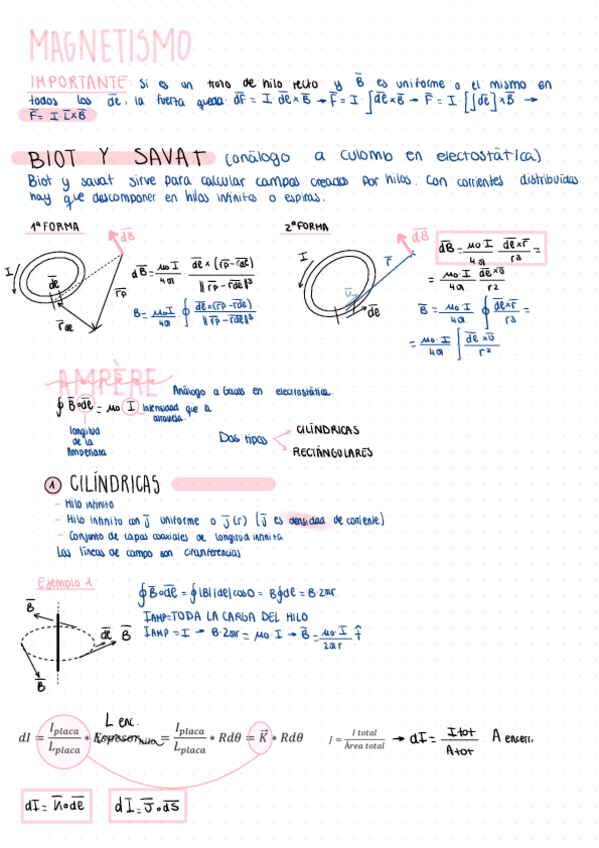 MAGNETISMO
IMPORTANTE: Si es un trozo de hilo recto y B̅ es uniforme o el mismo en
todos los d̅e̅, la fuerza queda: dF̅ = I · d̅e̅ × B̅ → F̅ = I · ∫d̅e̅ × B̅ → F̅ = I · [∫d̅e̅] × B̅ →
F̅ = I · L̅ × B̅
BIOT Y SAVAT (análogo a culomb en electrostática)
Biot y savat sirve para calcular campos creados por hilos. Con corrientes distribuidas
hay que descomponer en hilos infinitos o espiras.
1ª FORMA
2ª FORMA
d̅B̅
I
d̅e̅
r̅p
r̅de
d̅B̅ = μ₀·I/4π · d̅e̅ × (r̅p − r̅de)/‖r̅p − r̅de‖³
B̅ = μ₀I/4π ∮ d̅e̅ × (r̅p − r̅de)/‖r̅p − r̅de‖³
d̅B̅
I
r̅
u̅
d̅e̅
d̅B̅ = μ₀·I/4π · d̅e̅×r̅/r³ =
= μ₀·I/4π · d̅e̅×u̅/r²
B̅ = μ₀·I/4π ∮ d̅e̅×r̅/r³ =
= μ₀·I/4π ∫ d̅e̅×u̅/r²
AMPÈRE
Análogo a Gauss en electrostática.
∮ B̅ ∘ d̅e̅ = μ₀ I intensidad que la
atraviesa.
longitud
de la
Amperiana
Dos tipos
CILÍNDRICAS
RECTÁNGULARES
1 CILÍNDRICAS
- Hilo infinito
- Hilo infinito con J̅ uniforme o J̅(r) (J̅ es densidad de corriente)
- Conjunto de capas coaxiales de longitud infinita
Las líneas de campo son circunferencias
Ejemplo 1
B̅
d̅e̅ B̅
B̅
∮B̅∘d̅e̅ = ∮|B||de|cos0 = B∮de = B·2πr
IAMP=TODA LA CARGA DEL HILO
IAMP = I → B·2πr = μ₀·I → B̅ = μ₀·I/2πr
L enc.
dI = Iplaca/Lplaca * = Iplaca/Lplaca * Rdθ = K⃗ * Rdθ
J = I total/Área total → dI = Itot/Atot A encerr.
dI = n̅∘d̅e̅
dI = J̅∘d̅S̅